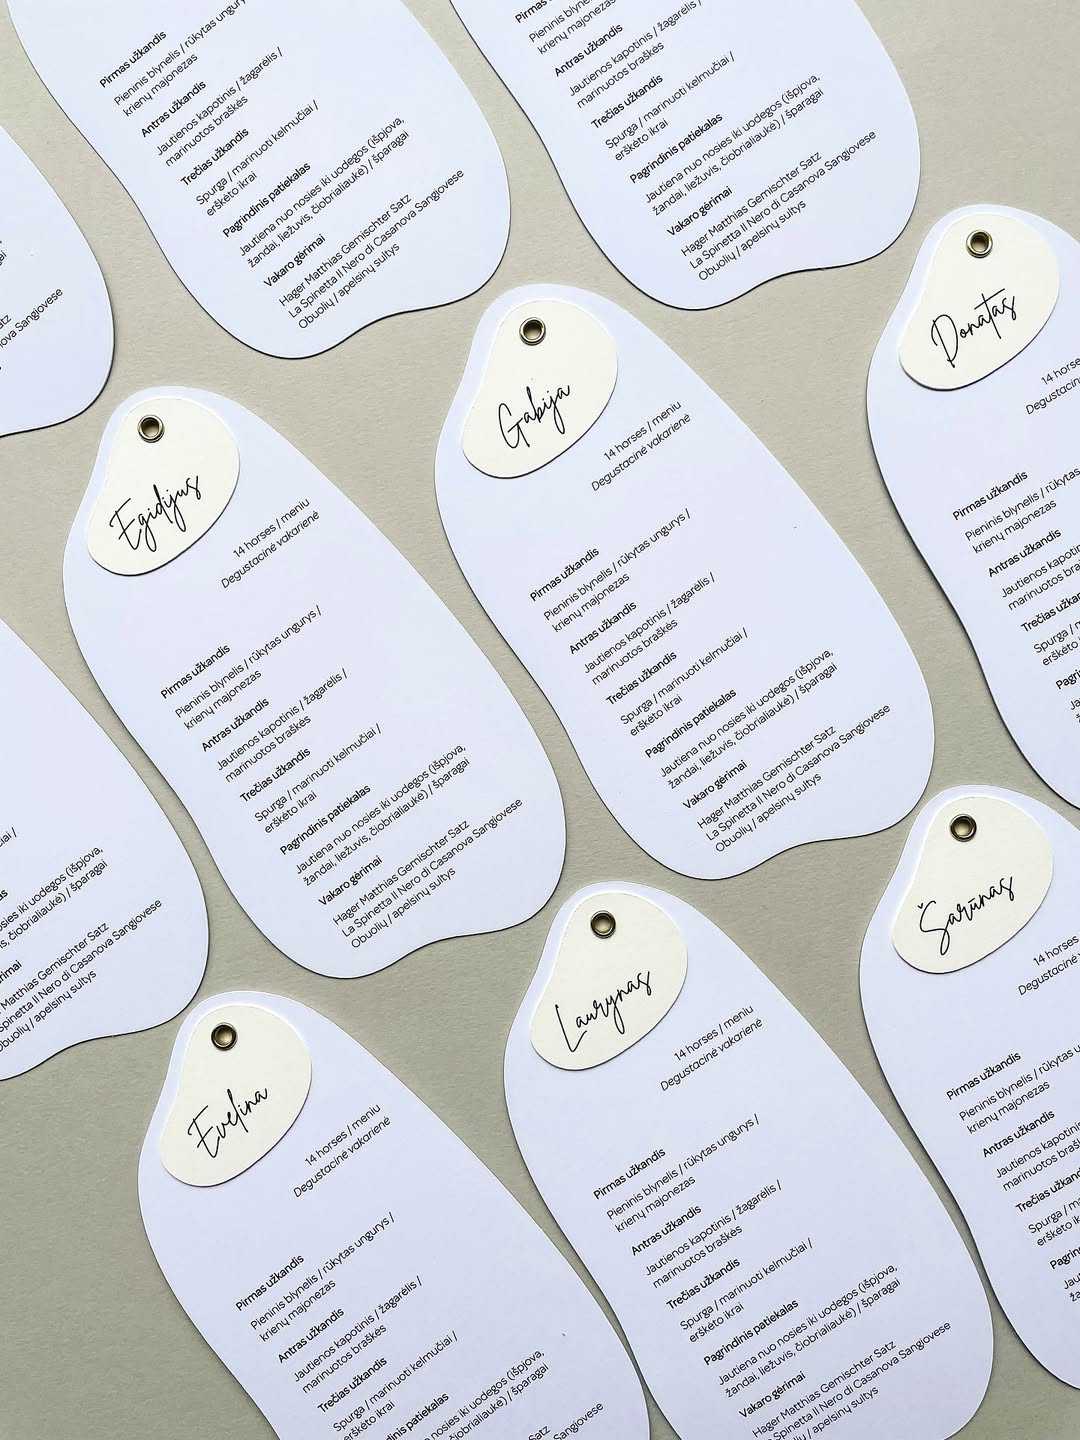 Pirmas užkandis
Pieninis blynelis / rūkytas
krienų majonezas
Antras užkandis
Jautienos kapotinis / žagarėlis /
marinuotos braškės
Trečias užkandis
Spurga / marinuoti kelmučiai /
eršketo ikrai
Pagrindinis patiekalas
Jautiena nuo nosies iki uodegos (išpjova,
žandai, liežuvis, čiobrialiaukė) / šparagai
Vakaro gėrimai
Hager Matthias Gemischter Satz
La Spinetta Il Nero di Casanova Sangiovese
Obuolių / apelsinų sultys
Pirmas
krienų majonezas
Antras užkandis
Jautienos kapotinis / žagarėlis /
marinuotos braškės
Trečias užkandis
Spurga / marinuoti kelmučiai /
eršketo ikrai
Pagrindinis patiekalas
Jautiena nuo nosies iki uodegos (išpjova,
žandai, liežuvis, čiobrialiaukė) / šparagai
Vakaro gėrimai
Hager Matthias Gemischter Satz
La Spinetta Il Nero di Casanova Sangiovese
Obuolių / apelsinų sultys
Satz
Sangiovese
Egidijus
14 horses / meniu
Degustacinė vakarienė
Pirmas užkandis
Pieninis blynelis / rūkytas ungurys /
krienų majonezas
Antras užkandis
Jautienos kapotinis / žagarėlis /
marinuotos braškės
Trečias užkandis
Spurga / marinuoti kelmučiai /
eršketo ikrai
Pagrindinis patiekalas
Jautiena nuo nosies iki uodegos (išpjova,
žandai, liežuvis, čiobrialiaukė) / šparagai
Vakaro gėrimai
Hager Matthias Gemischter Satz
La Spinetta Il Nero di Casanova Sangiovese
Obuolių / apelsinų sultys
Gabija
14 horses / meniu
Degustacinė vakarienė
Pirmas užkandis
Pieninis blynelis / rūkytas ungurys /
krienų majonezas
Antras užkandis
Jautienos kapotinis / žagarėlis /
marinuotos braškės
Trečias užkandis
Spurga / marinuoti kelmučiai /
eršketo ikrai
Pagrindinis patiekalas
Jautiena nuo nosies iki uodegos (išpjova,
žandai, liežuvis, čiobrialiaukė) / šparagai
Vakaro gėrimai
Hager Matthias Gemischter Satz
La Spinetta Il Nero di Casanova Sangiovese
Obuolių / apelsinų sultys
Donatas
14 horse
Degustacin
Pirmas užkandis
Pieninis blynelis / rūkytas
krienų majonezas
Antras užkandis
Jautienos kapotin
marinuotos
Trečias
Spurga / ma
eršketo
iki uodegos (išpjova,
čiobrialiaukė) / šparagai
Matthias Gemischter Satz
Spinetta Il Nero di Casanova Sangiovese
Obuolių / apelsinų sultys
Evelina
14 horses / meniu
Degustacinė vakarienė
Pirmas užkandis
Pieninis blynelis / rūkytas ungurys /
krienų majonezas
Antras užkandis
Jautienos kapotinis / žagarėlis /
marinuotos braškės
Trečias užkandis
Spurga / marinuoti kelmučiai /
eršketo ikrai
Pagrindinis patiekalas
nosies iki uodegos (išpjova,
čiobrialiaukė) / šparagai
Sangiovese
Laurynas
14 horses / meniu
Degustacinė vakarienė
Pirmas užkandis
Pieninis blynelis / rūkytas ungurys /
krienų majonezas
Antras užkandis
Jautienos kapotinis / žagarėlis /
marinuotos braškės
Trečias užkandis
Spurga / marinuoti kelmučiai /
eršketo ikrai
Pagrindinis patiekalas
Jautiena nuo nosies iki uodegos (išpjova,
žandai, liežuvis, čiobrialiaukė) / šparagai
Vakaro gėrimai
Hager Matthias Gemischter Satz
La Spinetta Il Nero di Casanova Sangiovese
Obuolių / apelsinų sultys
Šarūnas
14 horses
Degustacinė
Pirmas užkandis
Pieninis blynelis / rūkytas
krienų majonezas
Antras užkandis
Jautienos kapotinis
marinuotos
Trečias
Spurga /
eršketo